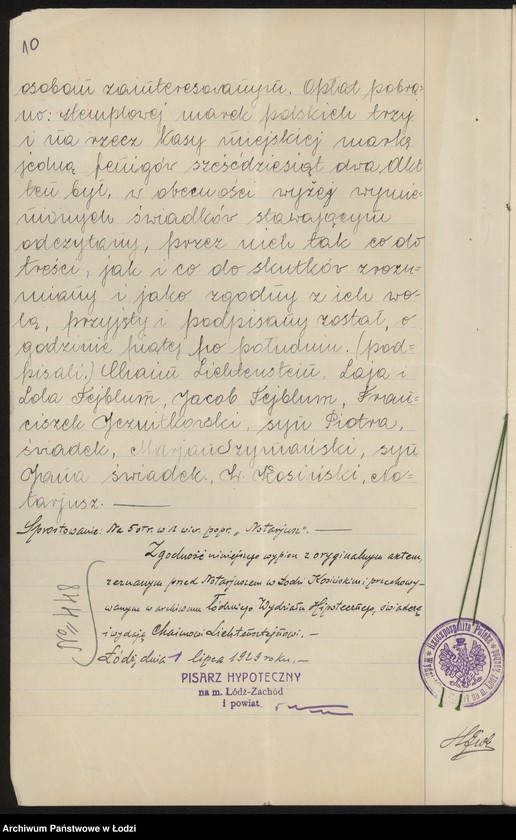 10
osobom zainteresowanym. Opłat pobra=
no: stemplowej marek polskich trzy
i na rzecz Kasy miejskiej marką
jedną fenigów sześćdziesiąt dwa Akt
ten był, w obecności wyżej wymie=
nionych świadków stawającym
odczytany, przez nich tak co do
treści, jak i co do skutków zrozu=
miany i jako zgodny z ich wo=
lą, przyjęty i podpisany został, o
godzinie piątej po południu. (pod=
pisali:) Chaim Lichtenstein, Łaja i
Lola Fejblum, Jacob Fejblum, Fran=
ciszek syn Piotra,
świadek, Marjan Szymański, syn
Jana świadek, K. Kosiński, No=
tarjusz. —
Sprostowanie: Na 5 str. w 12 wier. popr. „Notarjusz". —
Zgodność niniejszego wypisu z oryginalnym aktem,
zeznanym przed Notarjuszem w Łodzi Kosińskim i przechowy=
wanym w archiwum Łódzkiego Wydziału Hipotecznego, świadczę
i wydaję Chaimowi Lichtensztejnowi. —
Łódź, dnia 1 lipca 1929 roku. —
№ 448
PISARZ HYPOTECZNY
na m. Łódź-Zachód
i powiat
Rzeczpospolita Polska
Archiwum Państwowe w Łodzi